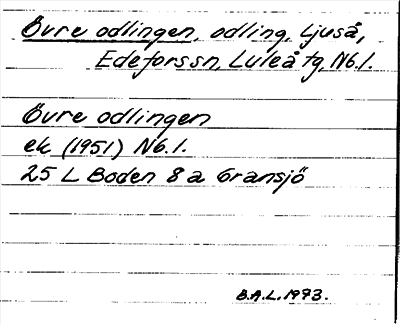 Övre odlingen, odling, Ljuså,
Edeforssn, Luleå tg, Nb.l.
Övre odlingen
ek (1951) Nb.l.
25 L Boden 8 a Gransjö
B.A.L. 1973.